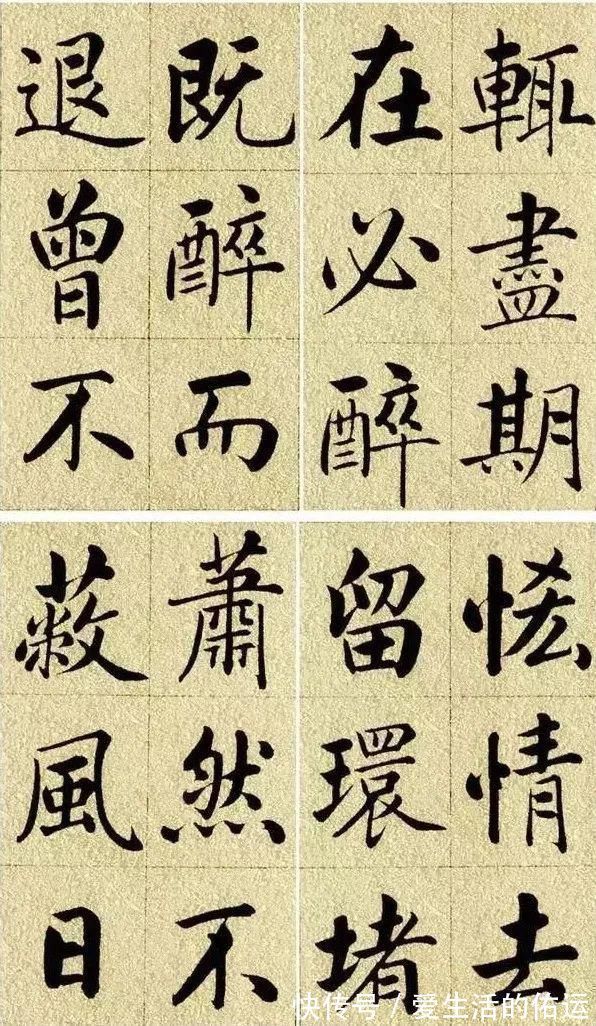 輒盡期
在必醉
既醉而
退曾不
恡情去
留環堵
蕭然不
蔽風日
快传号 / 爱生活的佑运